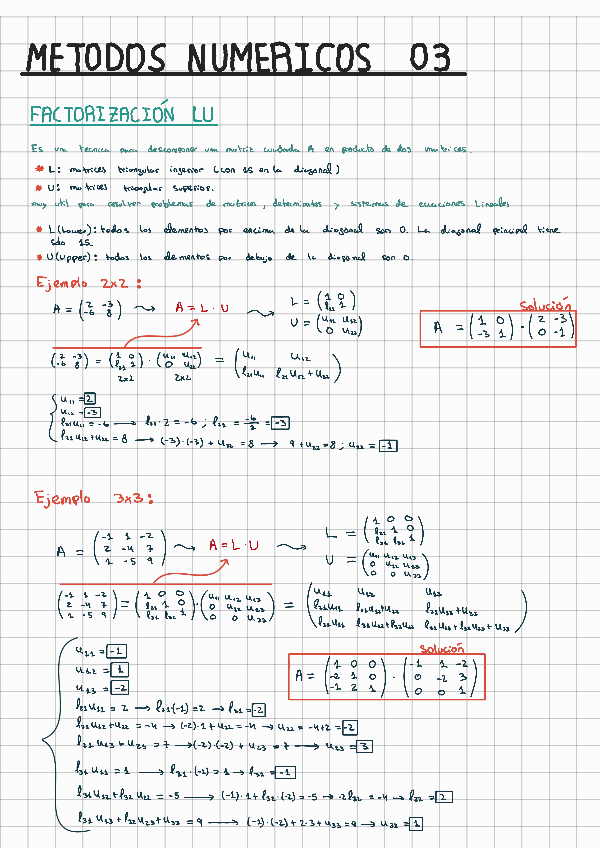 METODOS NUMERICOS 03
FACTORIZACIÓN LU
Es una tecnica para descomponer una matriz cuadrada A en producto de dos matrices.
* L: matrices triangular inferior (con 1s en la diagonal)
* U: matrices triangular superior.
muy util para resolver problemas de matrices, determinantes y sistemas de ecuaciones lineales
* L(Lower): todos los elementos por encima de la diagonal son 0. La diagonal principal tiene
sdo 1s.
* U(Upper): todos los elementos por debajo de la diagonal son 0
Ejemplo 2x2:
A = (2 -3; -6 8) → A = L · U → L = (1 0; l21 1)
U = (u11 u12; 0 u22)
Solución
A = (1 0; -3 1) · (2 -3; 0 -1)
(2 -3; -6 8) = (1 0; l21 1) · (u11 u12; 0 u22) = (u11 u12; l21u11 l21u12+u22)
2x2 2x2
u11 = 2
u12 = -3
l21u11 = -6 → l21·2 = -6; l21 = -6/2 = -3
l21u12+u22 = 8 → (-3)·(-3)+u22 = 8 → 9+u22 = 8; u22 = -1
Ejemplo 3x3:
A = (-1 1 -2; 2 -4 7; 1 -5 9) → A = L · U → L = (1 0 0; l21 1 0; l31 l32 1)
U = (u11 u12 u13; 0 u22 u23; 0 0 u33)
(-1 1 -2; 2 -4 7; 1 -5 9) = (1 0 0; l21 1 0; l31 l32 1) · (u11 u12 u13; 0 u22 u23; 0 0 u33) = (u11 u12 u13; l21u11 l21u12+u22 l21u13+u23; l31u11 l31u12+l32u22 l31u13+l32u23+u33)
Solución
A = (1 0 0; -2 1 0; -1 2 1) · (-1 1 -2; 0 -2 3; 0 0 1)
u11 = -1
u12 = 1
u13 = -2
l21u11 = 2 → l21(-1) = 2 → l21 = -2
l21u12+u22 = -4 → (-2)·1+u22 = -4 → u22 = -4+2 = -2
l21u13+u23 = 7 → (-2)·(-2)+u23 = 7 → u23 = 3
l31u11 = 1 → l31·(-1) = 1 → l31 = -1
l31u12+l32u22 = -5 → (-1)·1+l32·(-2) = -5 → -2l32 = -4 → l32 = 2
l31u13+l32u23+u33 = 9 → (-1)·(-2)+2·3+u33 = 9 → u33 = 1